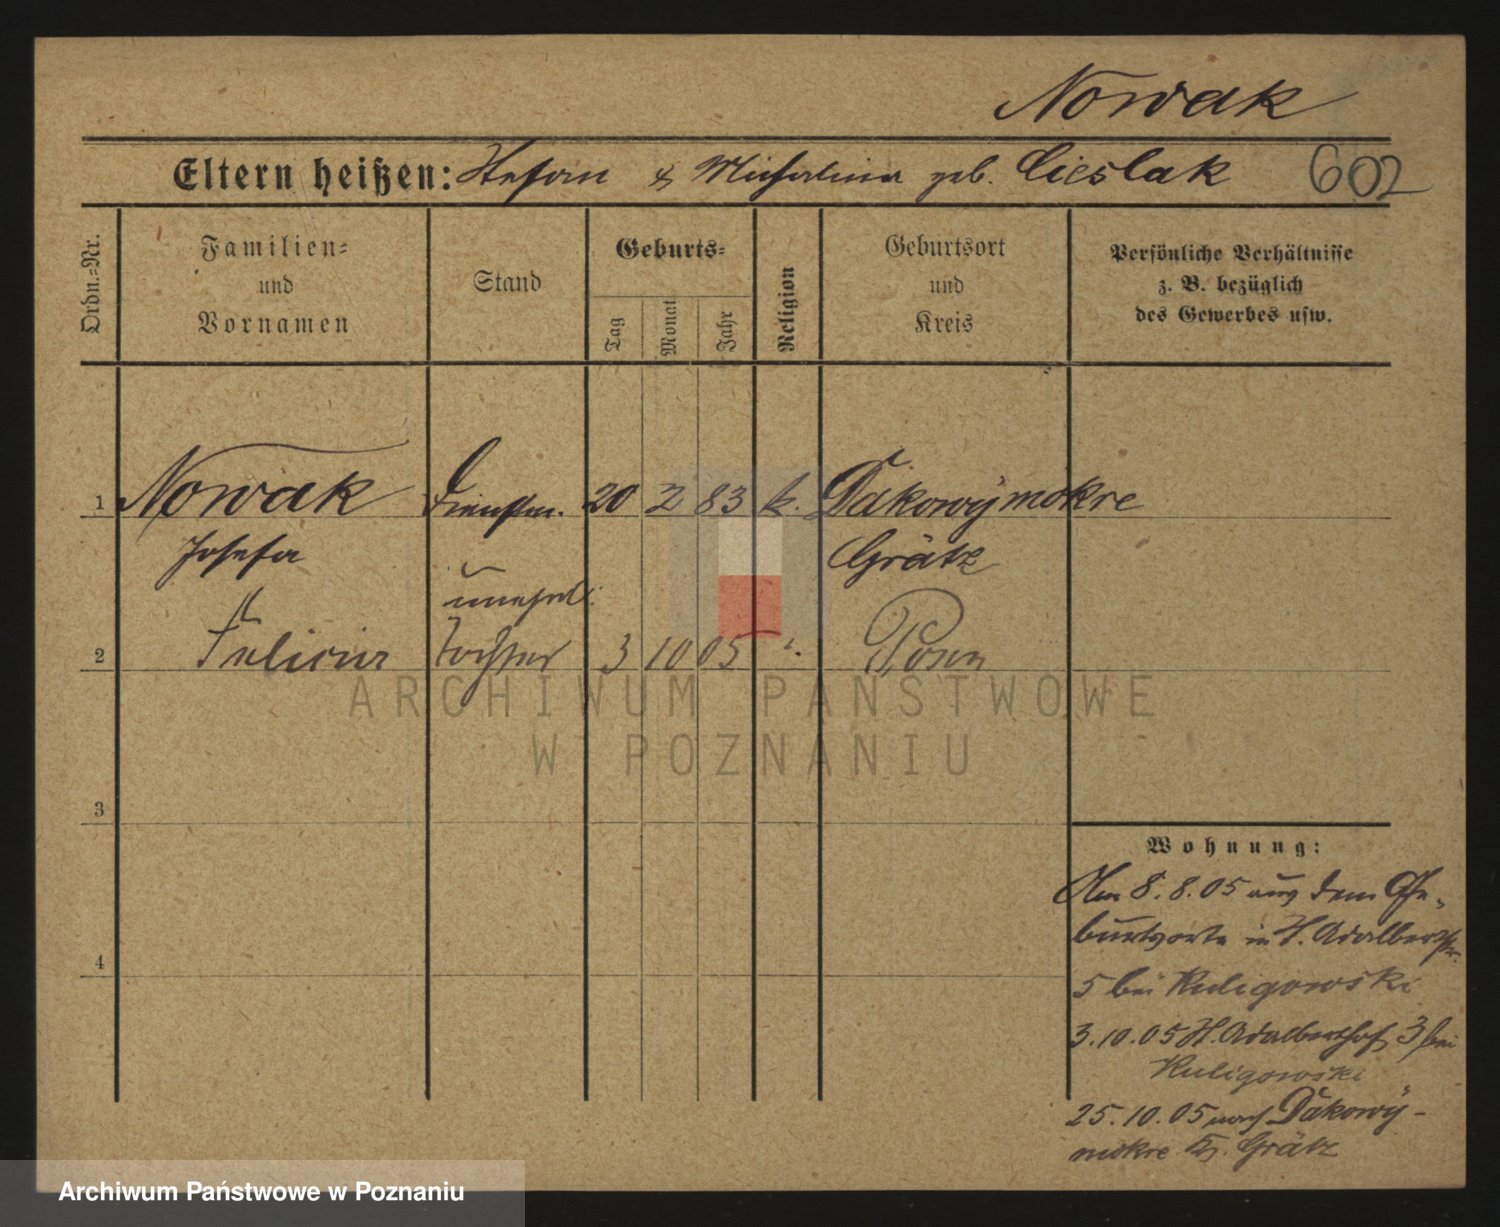 Nowak
Eltern heißen: Stefan & Michalina geb. Cieslak 602
Ordn.=Nr.
Familien=
und
Vornamen
Stand
Geburts=
Tag
Monat
Jahr
Religion
Geburtsort
und
Kreis
Persönliche Verhältnisse
z. B. bezüglich
des Gewerbes usw.
1 Nowak Dienstm. 20 2 83 k. Dakowymokre
Josefa Grätz
unehel.
2 Felicia Tochter 3 10 05 ". Posen
3
4
Wohnung:
Am 8.8.05 aus dem Ge-
burtsorte in St. Adalbertstr.
5 bei Kuligowski
3.10.05 St. Adalberthof 3 bei
Kuligowski
25.10.05 nach Dakowy-
mokre Kr. Grätz
ARCHIWUM PAŃSTWOWE
W POZNANIU
Archiwum Państwowe w Poznaniu